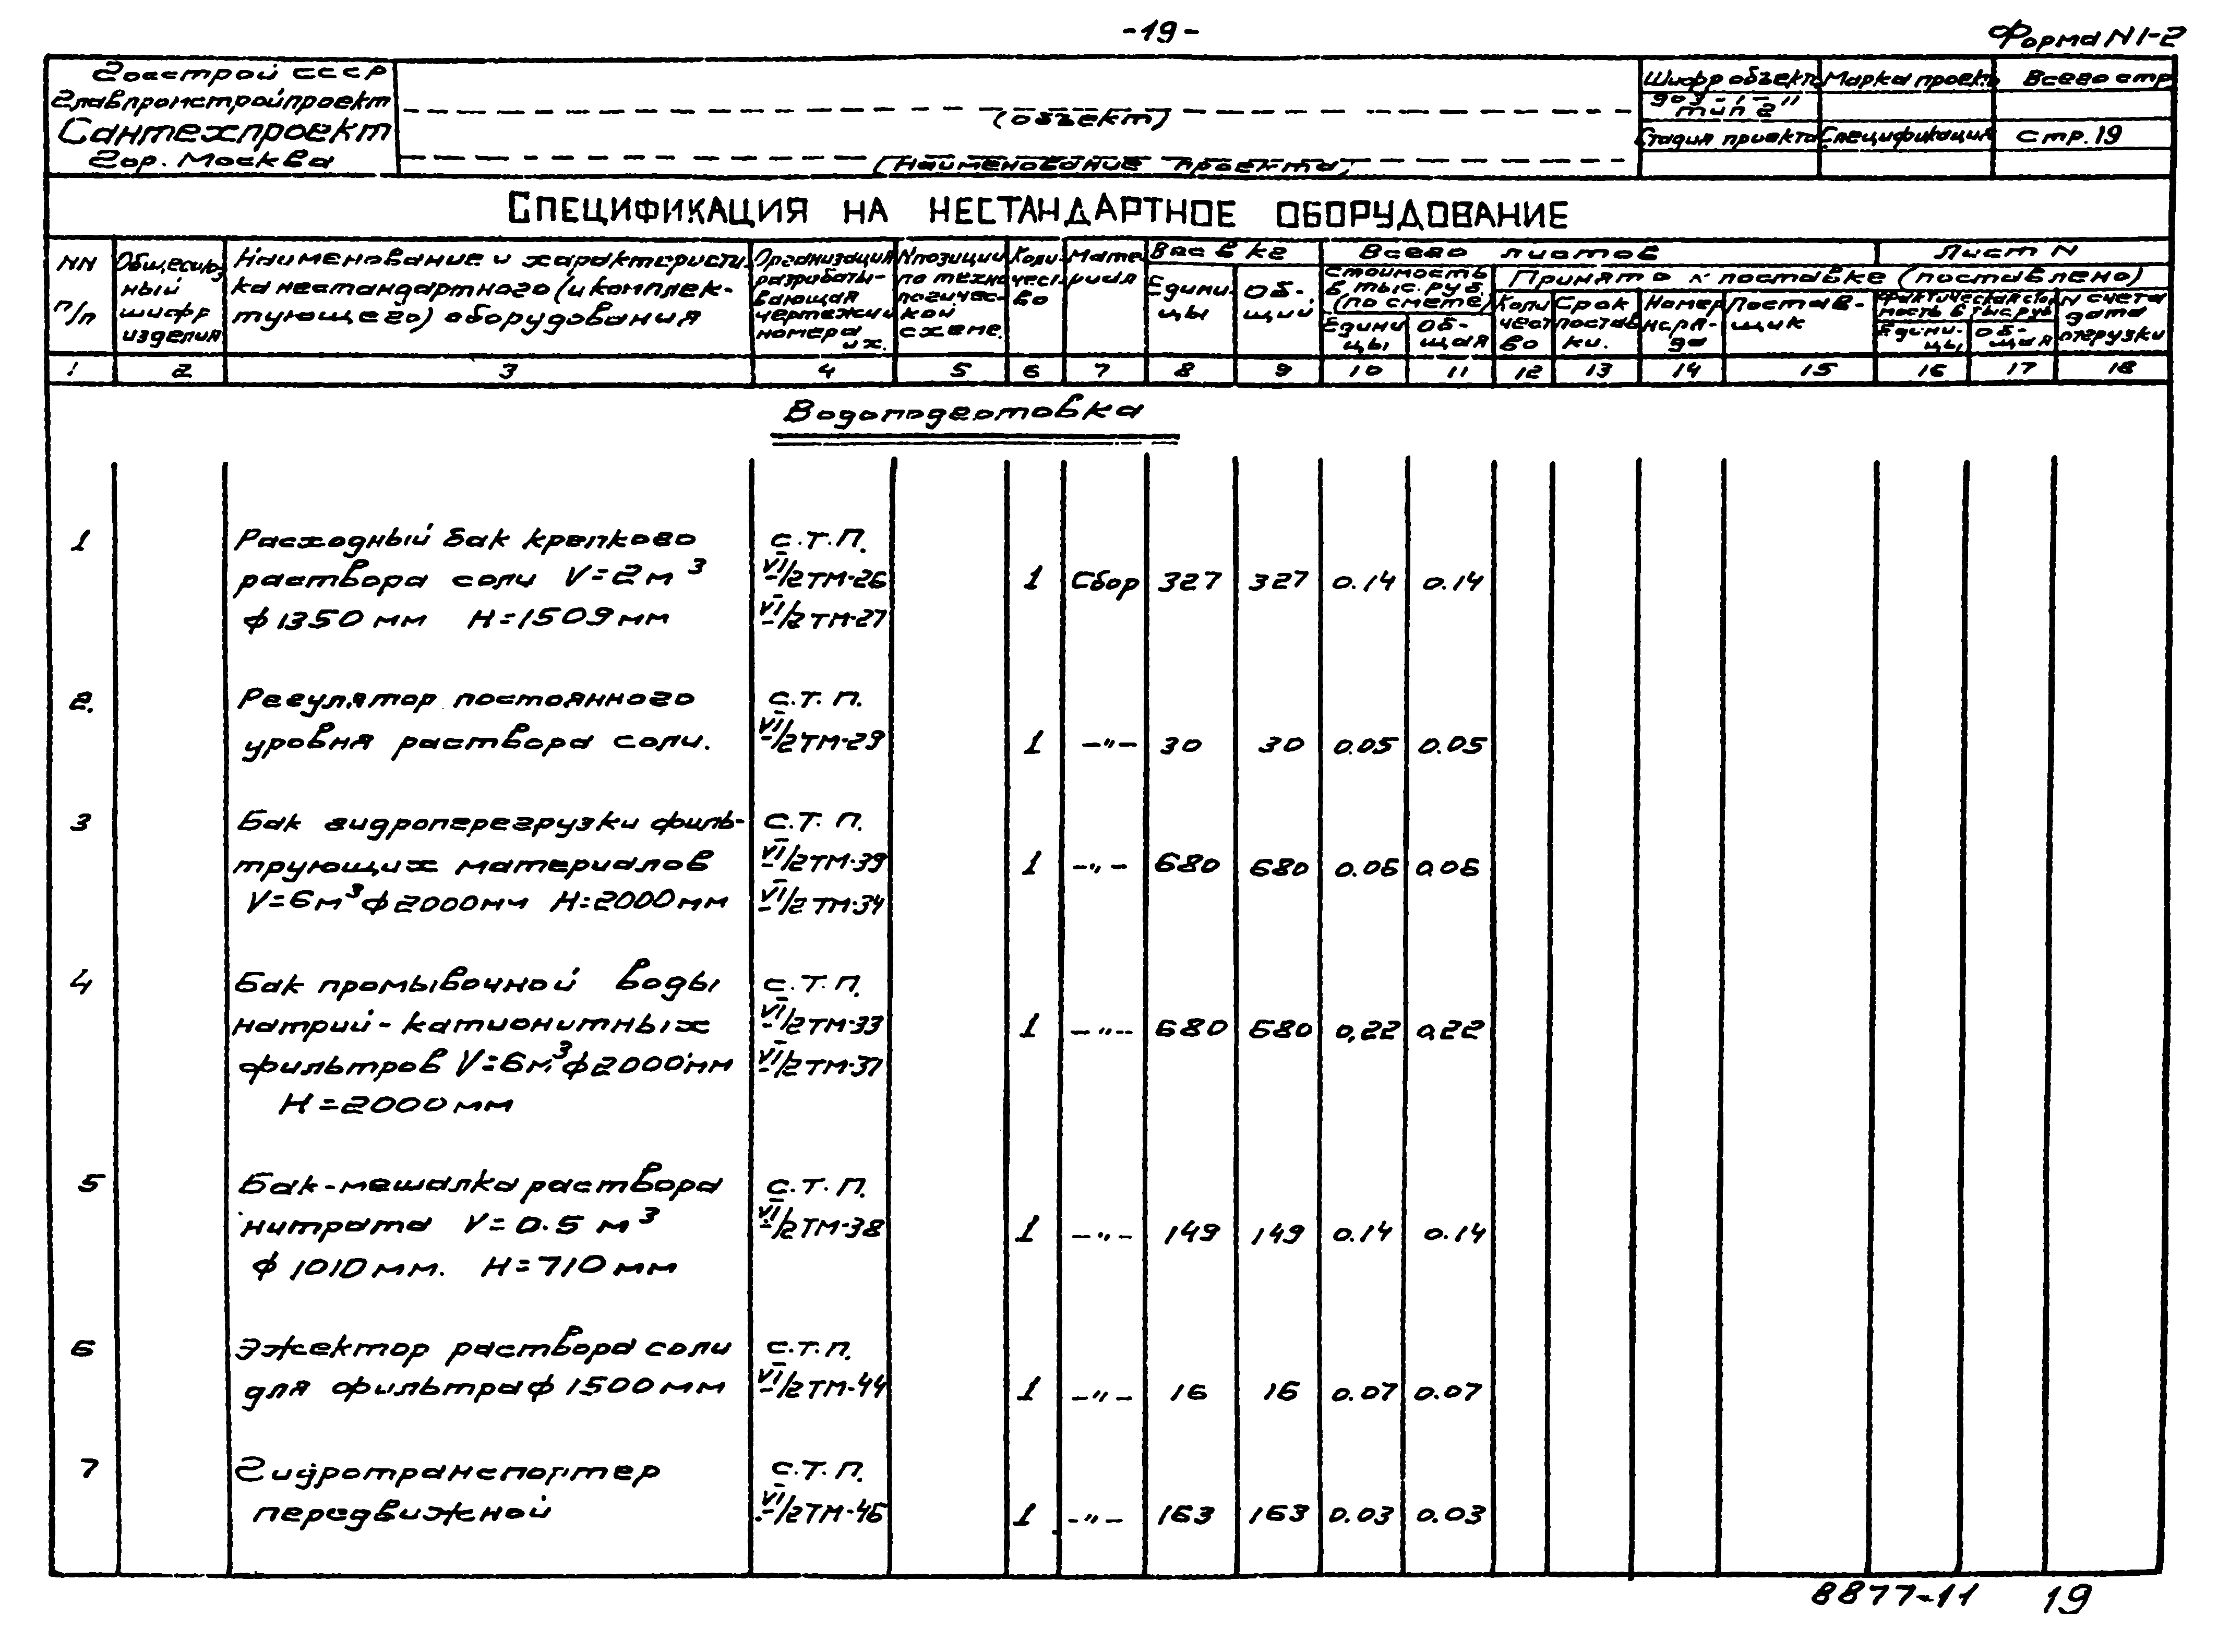 -19-
Форма N 1-2
Госстрой СССР
Главпромстройпроект
Сантехпроект
Гор. Москва
(объект)
(Наименование проекта)
Шифр объекта
Марка проекта
Всего стр.
903-1-"
тип 2
Стадия проекта
Спецификация
Стр. 19
СПЕЦИФИКАЦИЯ НА НЕСТАНДАРТНОЕ ОБОРУДОВАНИЕ
NN
п/п
Общесоюз
ный
шифр
изделия
Наименование и характеристи-
ка нестандартного (и комплек-
тующего) оборудования
Организация
разрабаты-
вающая
чертежи и
номера
их.
N позиции
по техно
логичес-
кой
схеме.
Коли-
чест-
во
Мате
риал
Вес в кг
Едини-
цы
Об-
щий
Всего листов
Лист N
Стоимость
в тыс. руб.
(по смете)
Едини
цы
Об-
щая
Принято к поставке (поставлено)
Коли
чест
во
Срок
постав
ки.
Номер
наря-
да
Постав-
щик
Фактическая стои
мость в тыс. руб
Едини-
цы
Об-
щая
N счета
дата
отгрузки
1 2 3 4 5 6 7 8 9 10 11 12 13 14 15 16 17 18
Водоподготовка
1 Расходный бак крепкого С.Т.П.
раствора соли V=2м³ VI/2ТМ-26 1 Сбор 327 327 0.14 0.14
ф 1350 мм H=1509 мм VI/2ТМ-27
2. Регулятор постоянного С.Т.П.
уровня раствора соли. VI/2ТМ-29 1 -"- 30 30 0.05 0.05
3 Бак гидроперегрузки филь- С.Т.П.
трующих материалов VI/2ТМ-39 1 -"- 680 680 0.06 0.06
V=6м³ ф 2000мм H=2000мм VI/2ТМ-34
4 Бак промывочной воды С.Т.П.
натрий-катионитных VI/2ТМ-33 1 -"- 680 680 0,22 0,22
фильтров V=6м³ ф 2000мм VI/2ТМ-37
H=2000 мм
5 Бак-мешалка раствора С.Т.П.
нитрата V=0.5 м³ VI/2ТМ-38 1 -"- 149 149 0.14 0.14
ф 1010 мм. H=710 мм
6 Эжектор раствора соли С.Т.П.
для фильтра ф 1500 мм VI/2ТМ-44 1 -"- 16 16 0.07 0.07
7 Гидротранспортер С.Т.П.
передвижной VI/2ТМ-46 1 -"- 163 163 0.03 0.03
8877-11 19